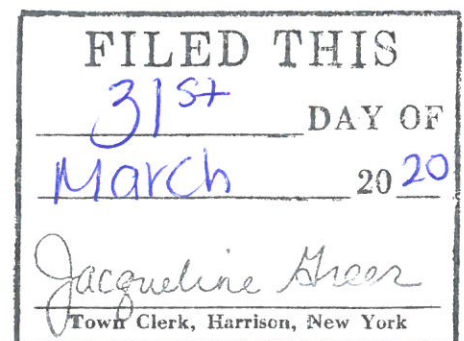 FILED THIS
31st DAY OF
March 2020
Jacqueline Greer
Town Clerk, Harrison, New York